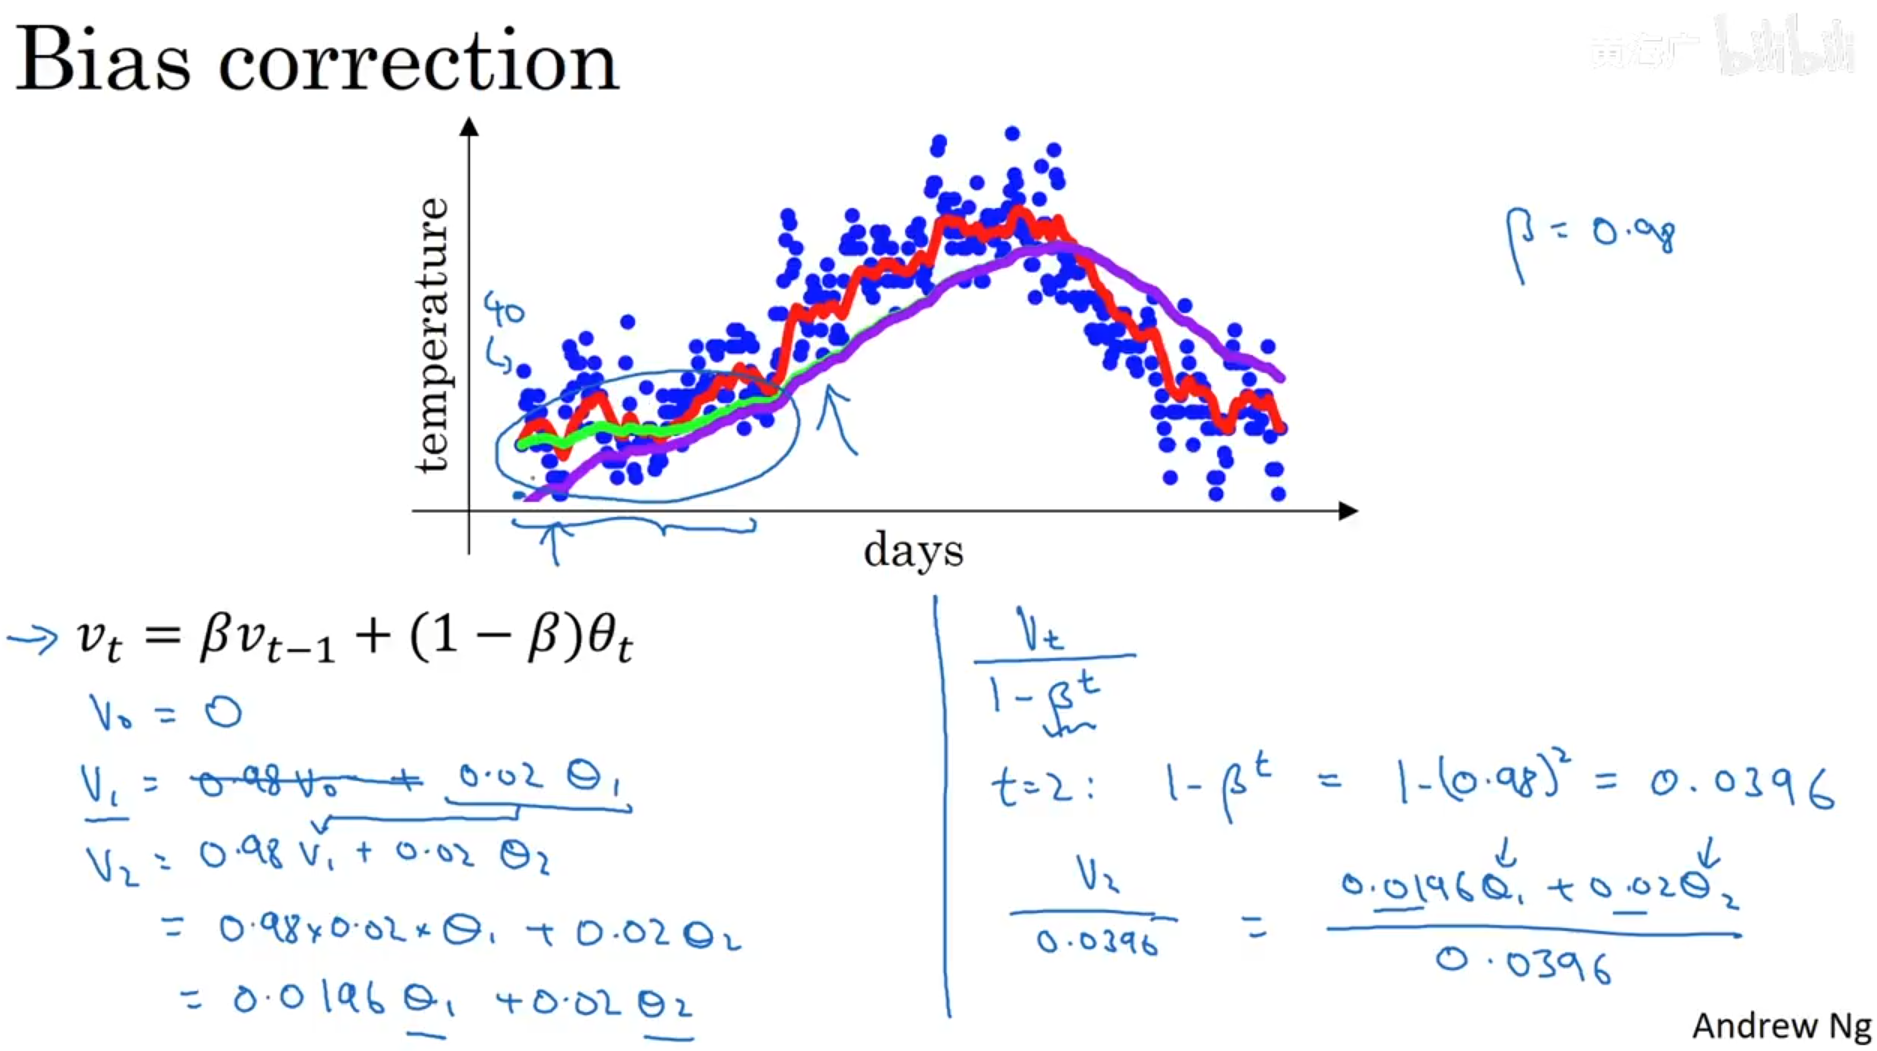 Bias correction
黄海广 bilibili
temperature
40
days
β = 0.98
→ vₜ = βvₜ₋₁ + (1 − β)θₜ
V₀ = 0
V₁ = 0.98 V₀ + 0.02 θ₁
V₂ = 0.98 V₁ + 0.02 θ₂
= 0.98 x 0.02 x θ₁ + 0.02 θ₂
= 0.0196 θ₁ + 0.02 θ₂
Vₜ
1 - βᵗ
t=2: 1 - βᵗ = 1 - (0.98)² = 0.0396
V₂ = 0.0196 θ₁ + 0.02 θ₂
0.0396 0.0396
Andrew Ng